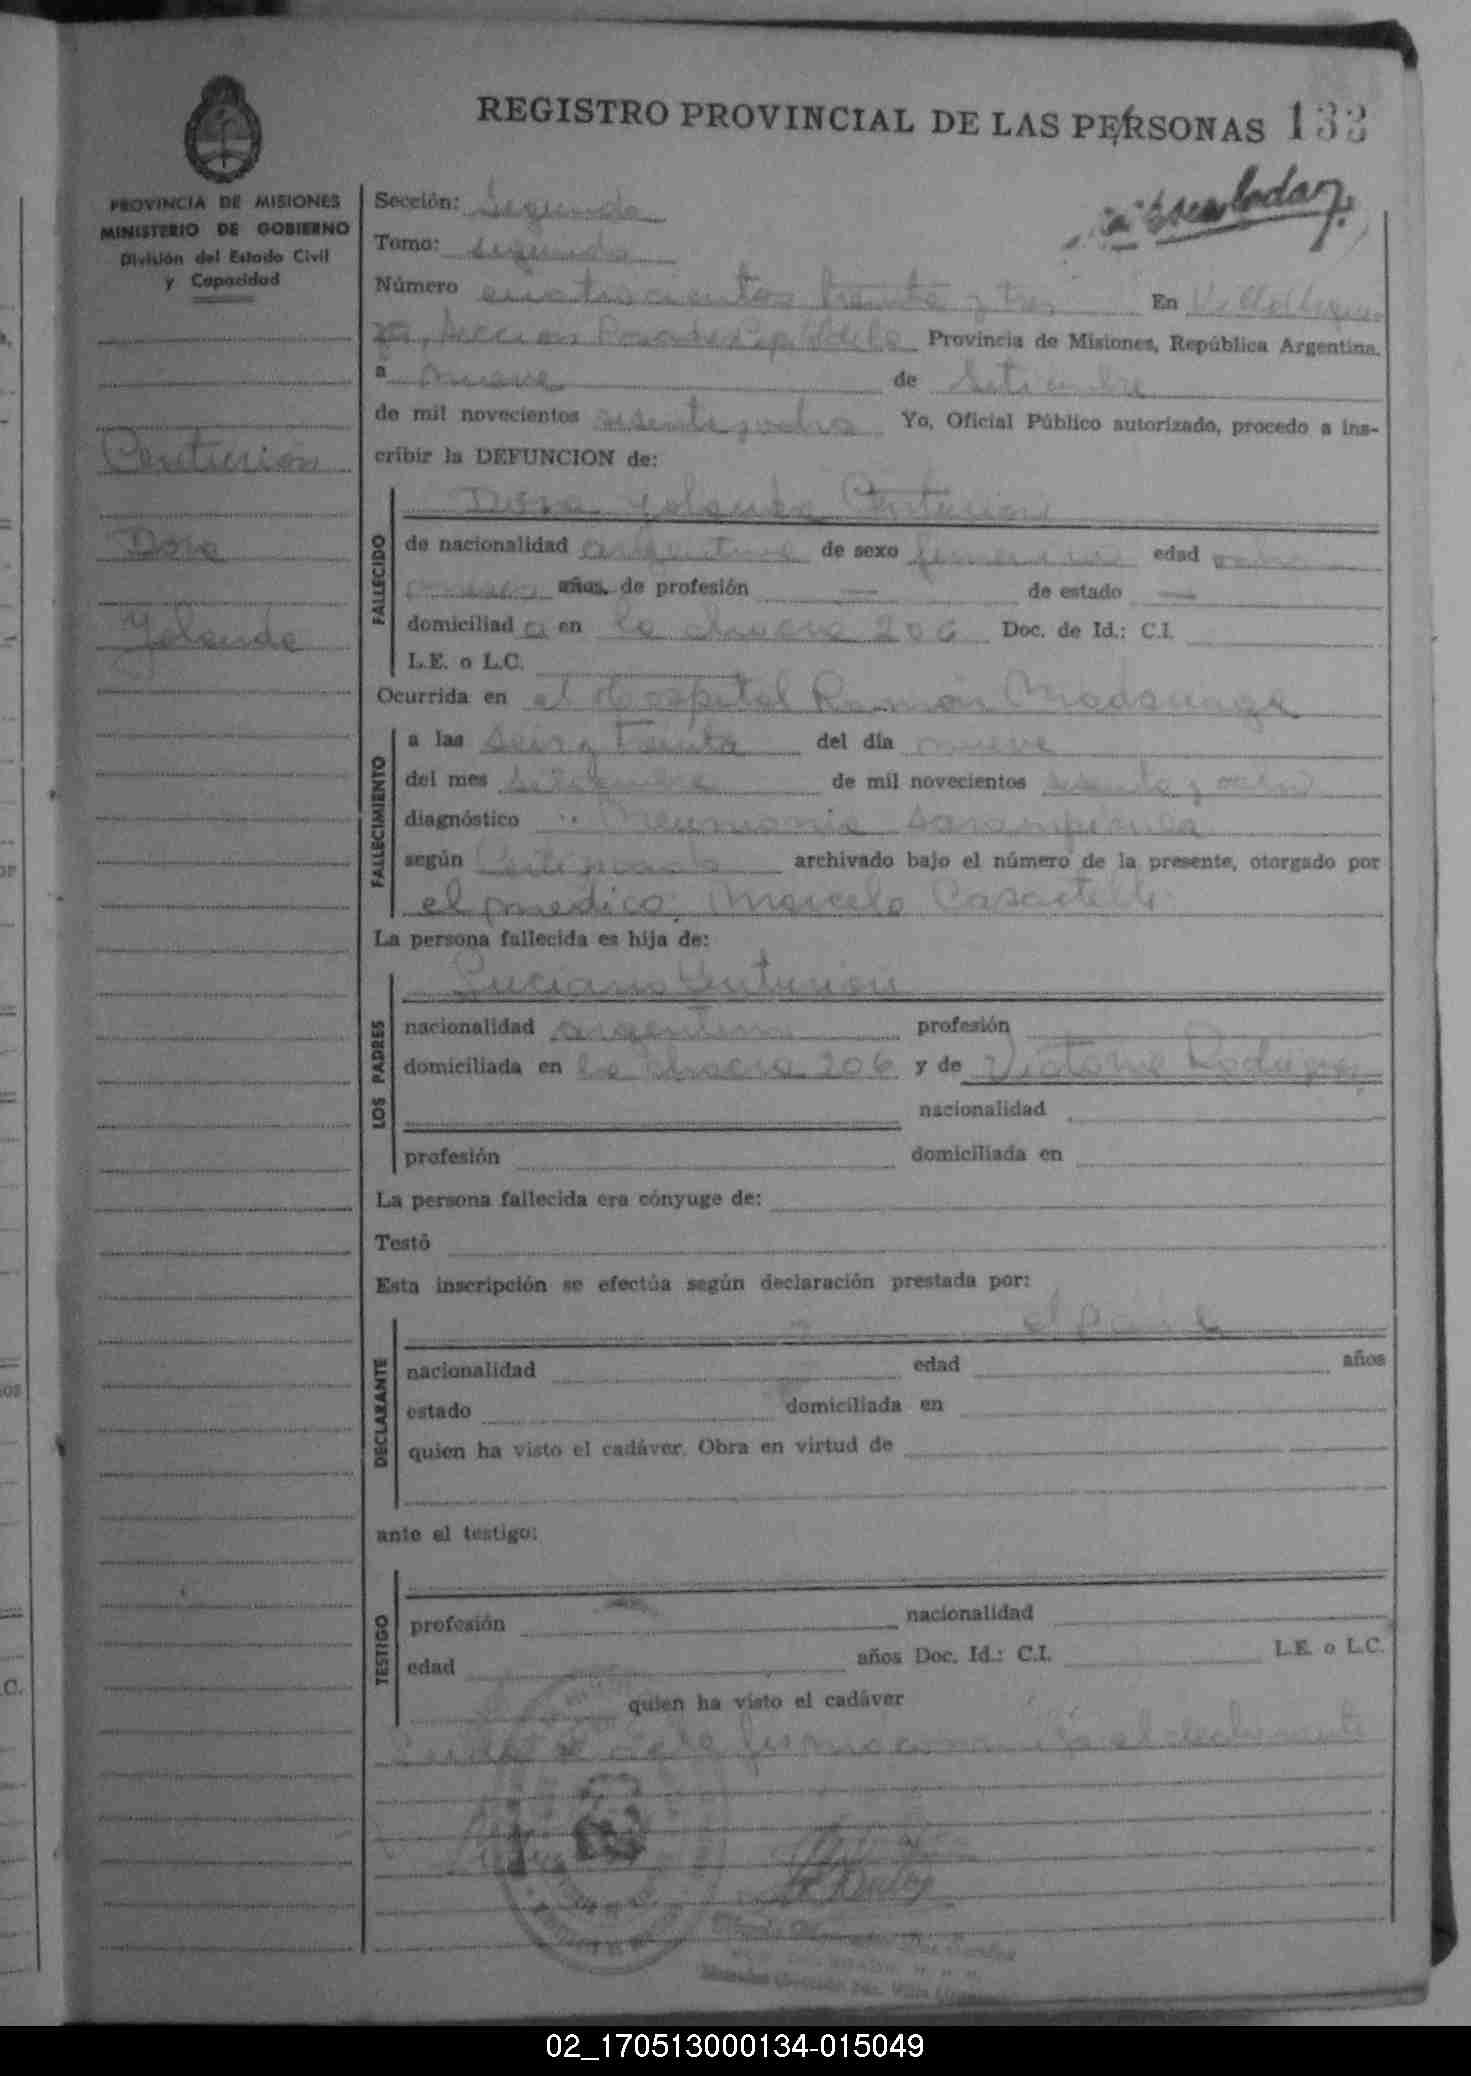 REGISTRO PROVINCIAL DE LAS PERSONAS 133
PROVINCIA DE MISIONES
MINISTERIO DE GOBIERNO
División del Estado Civil
y Capacidad
Centurión
Dora
Yolanda
Sección: Segunda
Tomo: segundo
Número cuatrocientos treinta y tres En Villa Urqui-
za, Seccion Provincia de Misiones, República Argentina,
a nueve de Setiembre
de mil novecientos sesenta y ocho Yo, Oficial Público autorizado, procedo a ins-
cribir la DEFUNCION de:
Dora Yolanda Centurion
FALLECIDO
de nacionalidad argentina de sexo femenino edad ocho
meses años, de profesión — de estado —
domiciliad a en la chacra 206 Doc. de Id.: C.I.
L.E. o L.C.
Ocurrida en el Hospital Ramón Madariaga
FALLECIMIENTO
a las Seis y Treinta del día nueve
del mes setiembre de mil novecientos sesenta y ocho
diagnóstico Neumonía Sarampionosa
según Certificado archivado bajo el número de la presente, otorgado por
el medico, Marcelo
La persona fallecida es hija de:
Luciano Centurion
LOS PADRES
nacionalidad argentino profesión
domiciliada en la chacra 206 y de Victoria Rodriguez
nacionalidad
profesión domiciliada en
La persona fallecida era cónyuge de:
Testó
Esta inscripción se efectúa según declaración prestada por:
el padre
DECLARANTE
nacionalidad edad años
estado domiciliada en
quien ha visto el cadáver. Obra en virtud de
ante el testigo:
TESTIGO
profesión nacionalidad
edad años Doc. Id.: C.I. L.E. o L.C.
quien ha visto el cadáver
Leida el acta firma conmigo el declarante
Dos Santos
02_170513000134-015049